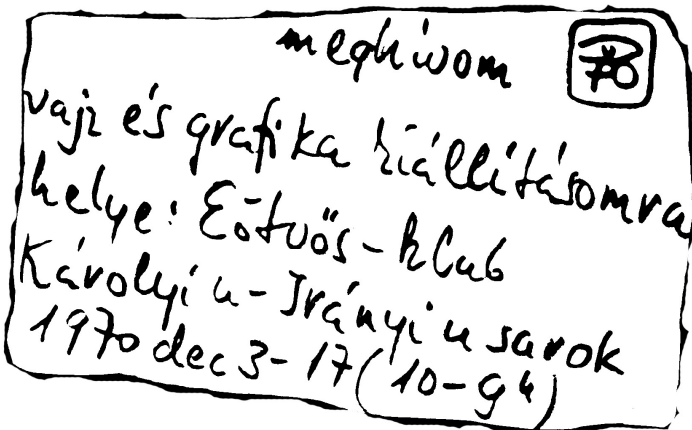 meghívom
70
vajz és grafika kiállításomra
helye: Eötvös-klub
Károlyi u - Irányi u sarok
1970 dec 3-17 (10-9h)